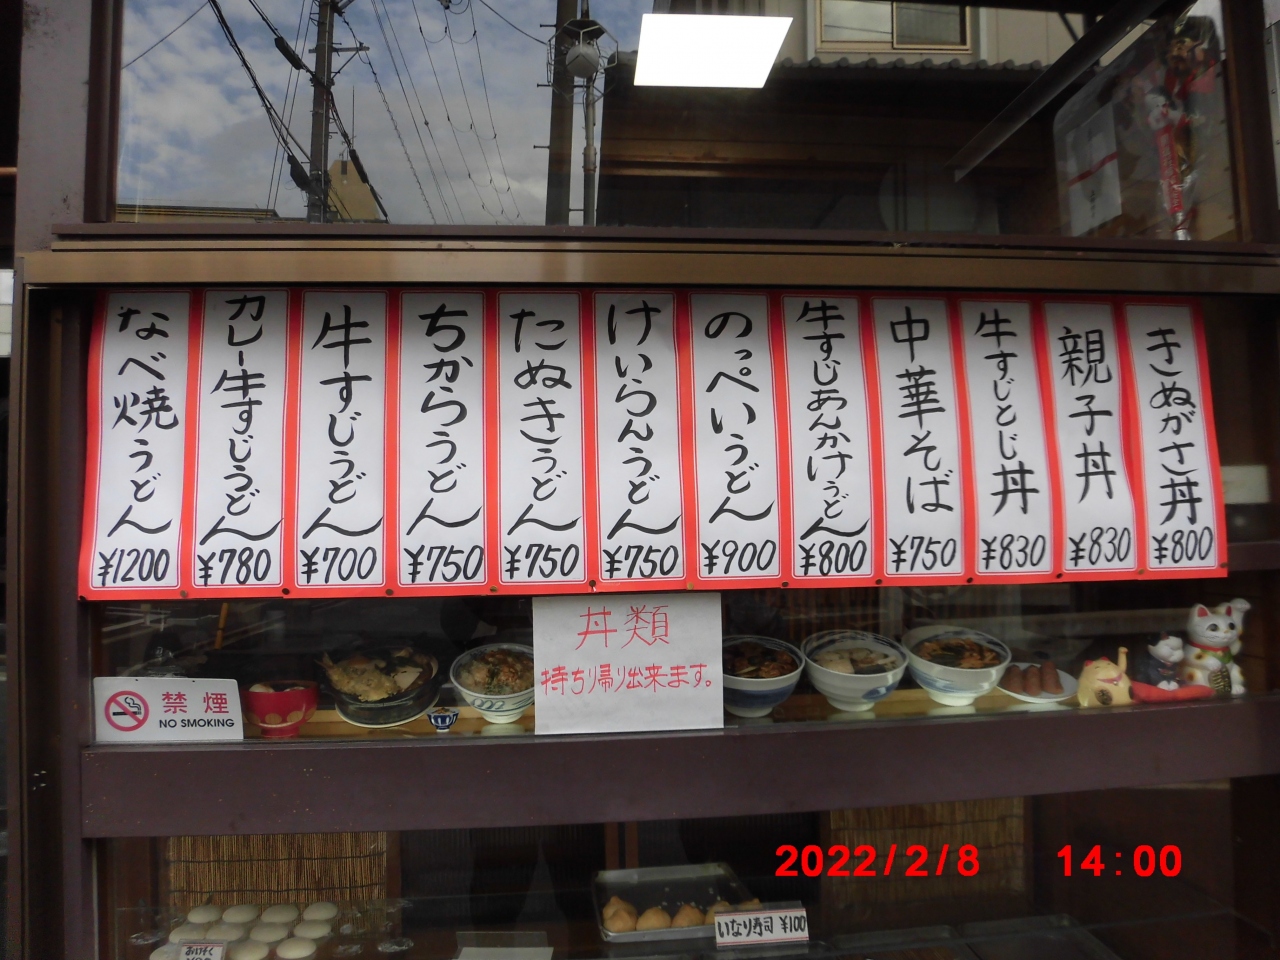 きぬがさ丼
¥800
親子丼
¥830
牛すじとじ丼
¥830
中華そば
¥750
牛すじあんかけうどん
¥800
のっぺいうどん
¥900
けいらんうどん
¥750
たぬきうどん
¥750
ちからうどん
¥750
牛すじうどん
¥700
カレー牛すじうどん
¥780
なべ焼うどん
¥1200
丼類
持ち帰り出来ます。
禁煙
NO SMOKING
2022/2/8 14:00
いなり寿司 ¥100